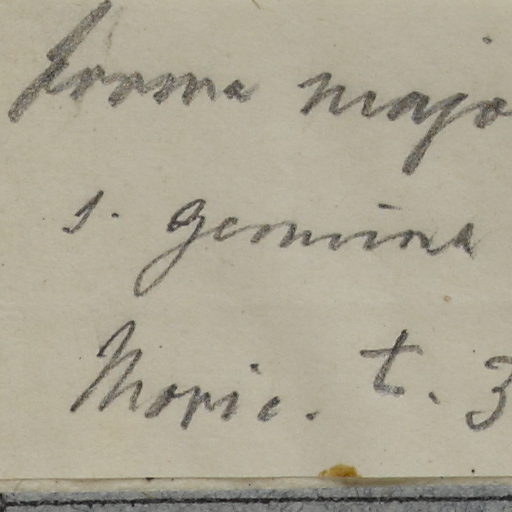 forma majo
s. genuina
Moric. t. 3